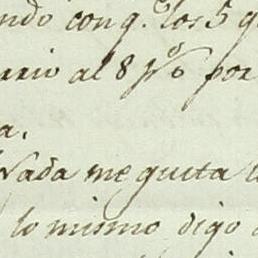 ndo con q.e los 5 q
ario al 8 p%o por
a.
Nada me gusta l
lo mismo digo